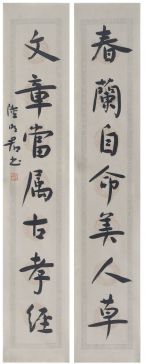 春蘭自命美人草
文章當属古孝經